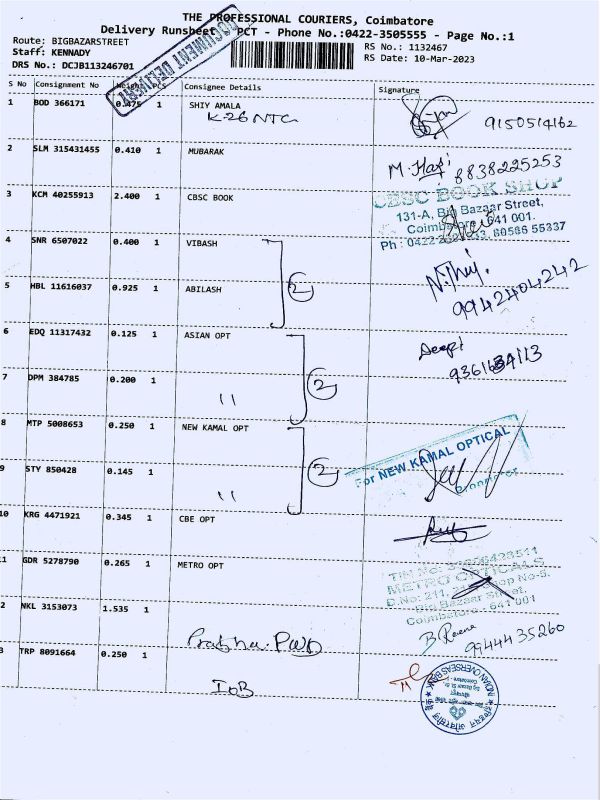 THE PROFESSIONAL COURIERS, Coimbatore
Delivery Runsheet - PCT - Phone No.:0422-3505555 - Page No.:1
Route: BIGBAZARSTREET
Staff: KENNADY
DRS No.: DCJB113246701
RS No.: 1132467
RS Date: 10-Mar-2023
DOCUMENT DELIVERY
S No Consignment No Weight PCS Consignee Details Signature
1 BOD 366171 0.475 1 SHIY AMALA
K-26 NTC 9150514162
2 SLM 315431455 0.410 1 MUBARAK
M. Hari 8838225253
3 KCM 40255913 2.400 1 CBSC BOOK
CBSC BOOK SHOP
131-A, Big Bazaar Street,
Coimbatore 641 001.
Ph : 0422 80586 55337
4 SNR 6507022 0.400 1 VIBASH
2
5 HBL 11616037 0.925 1 ABILASH
9942404242
6 EDQ 11317432 0.125 1 ASIAN OPT
2
7 DPM 384785 0.200 1 "
8 MTP 5008653 0.250 1 NEW KAMAL OPT
For NEW KAMAL OPTICAL
Proprietor
2
9 STY 850428 0.145 1 "
10 KRG 4471921 0.345 1 CBE OPT
11 GDR 5278790 0.265 1 METRO OPT
METRO OPTICALS
D.No: 211, Shop No-5,
Big Bazaar Street,
Coimbatore - 641 001
2 NKL 3153073 1.535 1 Prabha PWD
9944435260
3 TRP 8091664 0.250 1 IOB
INDIAN OVERSEAS BANK